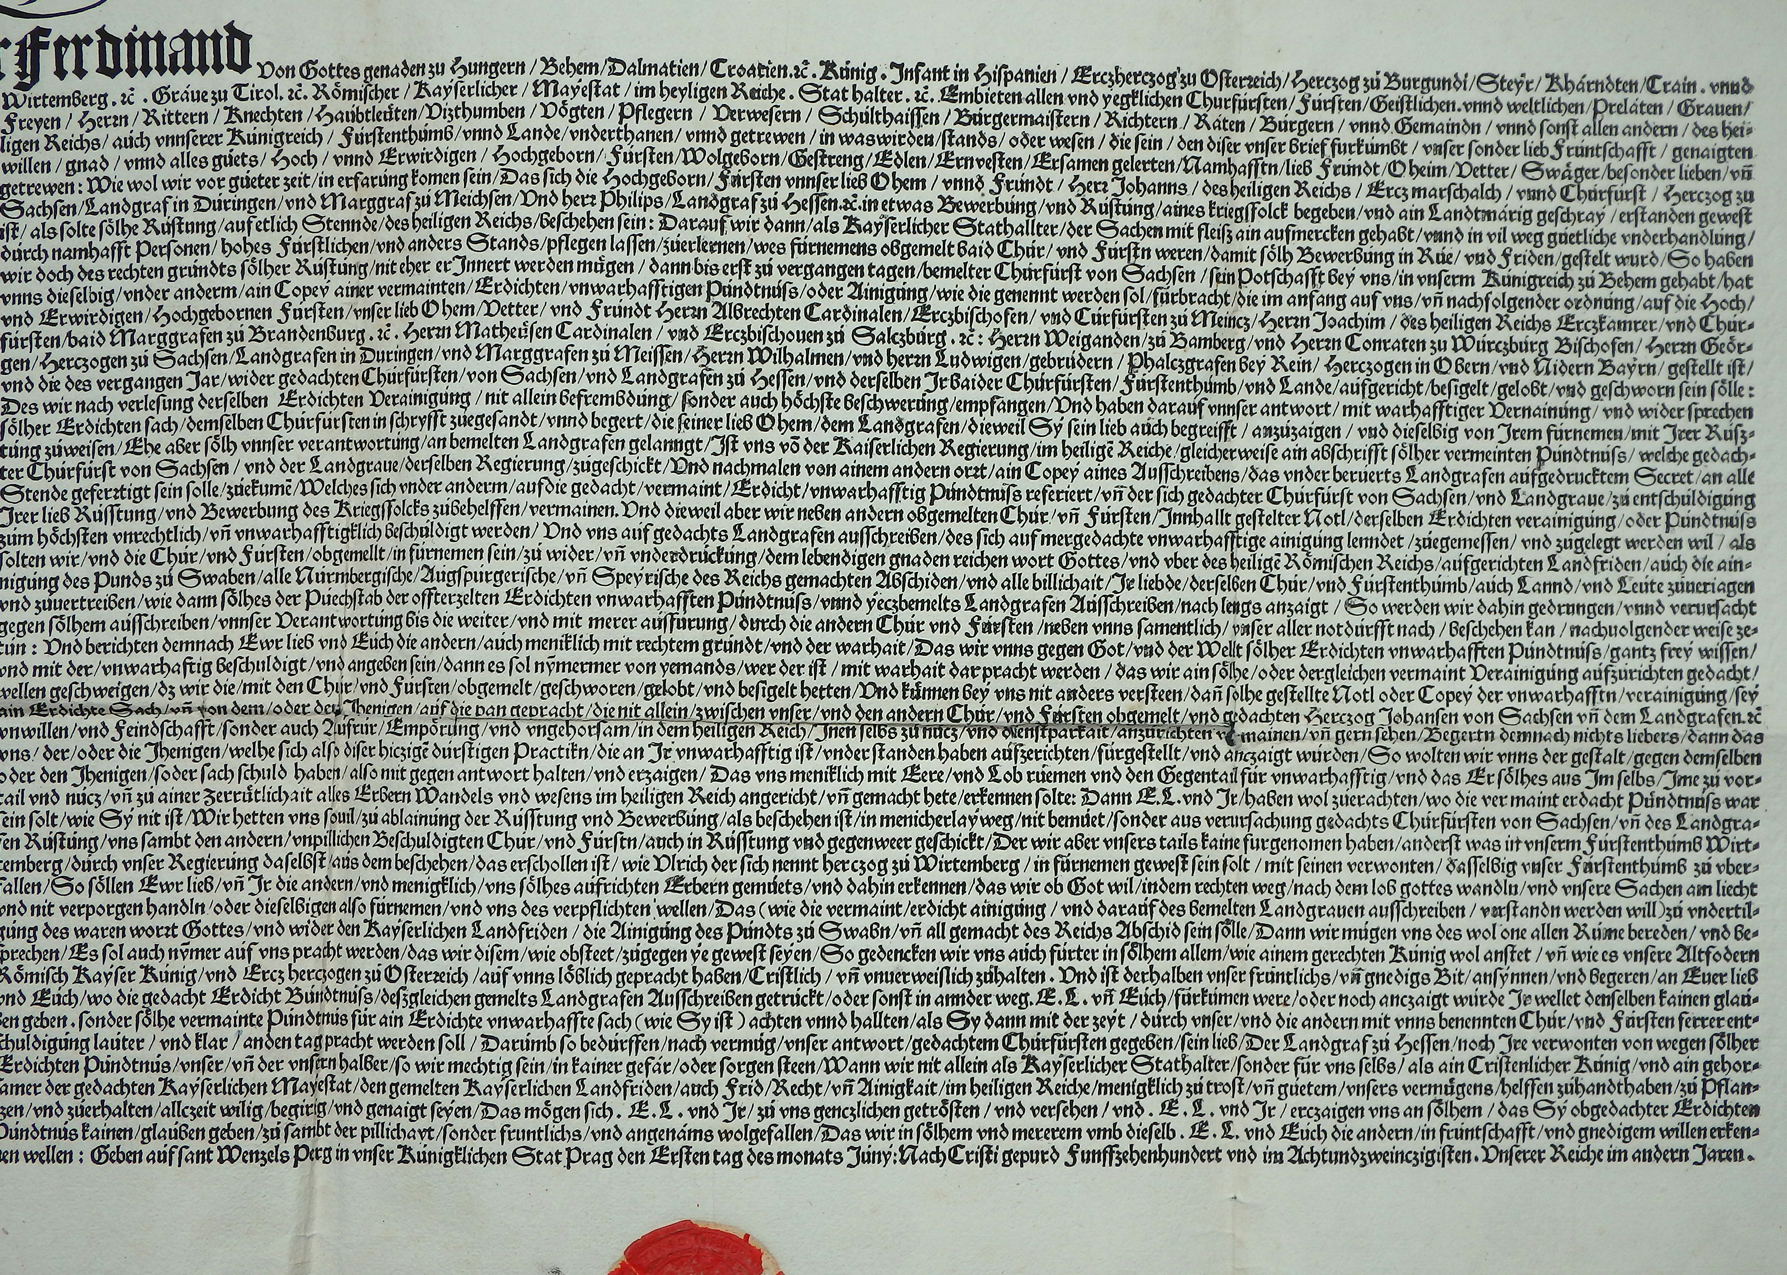 r Ferdinand Von Gottes genaden zu Hungern / Behem / Dalmatien / Croatien. ꝛc̃. Kúnig. Infant in Hispanien / Erczherczog zů Osterreich / Herczog zů Burgundi / Steyr / Kharndten / Crain. vnnd
Wirtemberg. ꝛc̃. Gráue zů Tirol. ꝛc̃. Römischer / Kayserlicher / Mayestat / im heyligen Reiche. Stat halter. ꝛc̃. Embieten allen vnd yegklichen Churfúrsten / Fúrsten / Geistlichen. vnnd weltlichen / Prelaten / Grauen /
Freyen / Herrn / Rittern / Knechten / Haubtleúten / Vizthumben / Vögten / Pflegern / Verwesern / Schulthaissen / Burgermaistern / Richtern / Räten / Burgern / vnnd Gemaindn / vnnd sonst allen andern / des hei-
ligen Reichs / auch vnnserer Kúnigreich / Fúrstenthúmb / vnnd Lande / vnderthanen / vnnd getrewen / in was wirden / stands / oder wesen / die sein / den diser vnser brief fúrkúmbt / vnser sonder lieb Frúntschafft / genaigten
willen / gnad / vnnd alles gúets / Hoch / vnnd Erwirdigen / Hochgeborn / Fúrsten / Wolgeborn / Gestreng / Edlen / Ernuesten / Ersamen gelerten / Namhafftn / lieb Fründt / Oheim / Vetter / Swäger / besonder lieben / vñ
getrewen: Wie wol wir vor gúeter zeit / in erfarung komen sein / Das sich die Hochgeborn / Fúrsten vnnser lieb Ohem / vnnd Fründt / Herr Johanns / des heiligen Reichs / Ercz marschalch / vnnd Chúrfúrst / Herczog zu
Sachsen / Landgraf in Dúringen / vnd Marggraf zú Meichsen / Vnd herr Philips / Landgraf zú Hessen. ꝛc̃. in etwas Bewerbung / vnd Rústung / aines kriegsfolck begeben / vnd ain Landtmärig geschray / erstanden gewest
ist / als solte sölhe Rústung / auf etlich Stennde / des heiligen Reichs / beschehen sein: Darauf wir dann / als Kayserlicher Stathallter / der Sachen mit fleiß ain aufmercken gehabt / vnnd in vil weg gúetliche vnderhandlung /
durch namhafft Personen / hohes Fúrstlichen / vnd anders Stands / pflegen lassen / zúerlernen / wes fúrnemens obgemelt baid Chúr / vnd Fúrstn weren / damit sölh Bewerbung in Rúe / vnd Friden / gestelt wurd / So haben
wir doch des rechten grúndts sölher Rústung / nit eher er Innert werden múgen / dann bis erst zú vergangen tagen / bemelter Chúrfúrst von Sachsen / sein Potschafft bey vns / in vnserm Kúnigreich zú Behem gehabt / hat
vnns dieselbig / vnder anderm / ain Copey ainer vermainten / Erdichten / vnwarhafftigen Púndtnúss / oder Ainigung / wie die genennt werden sol / fúrbracht / die im anfang auf vns / vñ nachfolgender ordnung / auf die Hoch /
vnd Erwirdigen / Hochgebornen Fúrsten / vnser lieb Ohem / Vetter / vnd Fründt Herrn Albrechten Cardinalen / Erczbischofen / vnd Cúrfúrsten zú Meincz / Herrn Joachim / des heiligen Reichs Erczkamrer / vnd Chúr-
fúrsten / baid Marggrafen zú Brandenburg. ꝛc̃. Herrn Matheúsen Cardinalen / vnd Erczbischouen zú Salczburg. ꝛc̃: Herrn Weiganden / zú Bamberg / vnd Herrn Conraten zú Wúrczburg Bischofen / Herrn Geör-
gen / Herczogen zú Sachsen / Landgrafen in Dúringen / vnd Marggrafen zú Meissen / Herrn Wilhalmen / vnd herrn Ludwigen / gebrúdern / Phalczgrafen bey Rein / Herczogen in Obern / vnd Nidern Bayrn / gestellt ist /
vnd die des vergangen Jar / wider gedachten Chúrfúrsten / von Sachsen / vnd Landgrafen zú Hessen / vnd derselben Ir baider Chúrfúrsten / Fúrstenthumb / vnd Lande / aufgericht / besigelt / gelobt / vnd geschworn sein sölle:
Des wir nach verlesung derselben Erdichten Verainigung / nit allein befrembdung / sonder auch höchste beschwerung / empfangen / Vnd haben darauf vnnser antwort / mit warhafftiger Vernainung / vnd wider sprechen
sölher Erdichten sach / demselben Chúrfúrsten in schryfft zúegesandt / vnnd begert / die seiner lieb Ohem / dem Landgrafen / dieweil Sy sein lieb auch begreifft / anzúzaigen / vnd dieselbig von Irem fúrnemen / mit Irer Rúsz-
tung zúweisen / Ehe aber sölh vnnser verantwortung / an bemelten Landgrafen gelanngt / Ist vns võ der Kaiserlichen Regierung / im heiligẽ Reiche / gleicherweise ain abschrifft sölher vermeinten Púndtnúss / welche gedach-
ter Chúrfúrst von Sachsen / vnd der Landgraue / derselben Regierung / zúgeschickt / Vnd nachmalen von ainem andern ortt / ain Copey aines Ausschreibens / das vnder berúerts Landgrafen aufgedrucktem Secret / an alle
Stende gefertigt sein solle / zúekumẽ / Welches sich vnder anderm / auf die gedacht / vermaint / Erdicht / vnwarhafftig Púndtnúss referiert / vñ der sich gedachter Chúrfúrst von Sachsen / vnd Landgraue / zú entschuldigung
Irer lieb Rússtung / vnd Bewerbung des Kriegsfolcks zúbehelffen / vermainen. Vnd dieweil aber wir neben andern obgemelten Chúr / vñ Fúrsten / Innhallt gestelter Notl / derselben Erdichten verainigung / oder Púndtnúss
zúm höchsten vnrechtlich / vñ vnwarhafftigklich beschúldigt werden / Vnd vns auf gedachts Landgrafen ausschreiben / des sich auf mergedachte vnwarhafftige ainigung lenndet / zúegemessen / vnd zúgelegt werden wil / als
solten wir / vnd die Chúr / vnd Fúrsten / obgemellt / in fúrnemen sein / zú wider / vñ vnderdrúckung / dem lebendigen gnaden reichen wort Gottes / vnd vber des heiligẽ Römischen Reichs / aufgerichten Landfriden / auch die ain-
nigung des Punds zú Swaben / alle Núrmbergische / Augspurgerische / vñ Speyrische des Reichs gemachten Abschiden / vnd alle billichait / Ir liebde / derselben Chúr / vnd Fúrstenthumb / auch Lannd / vnd Leúte zúueriagen
vnd zúuertreiben / wie dann sölhes der Púechstab der offterzelten Erdichten vnwarhafften Púndtnúss / vnnd yeczbemelts Landgrafen Ausschreiben / nach lengs anzaigt / So werden wir dahin gedrungen / vnnd verursacht
gegen sölhem ausschreiben / vnnser Verantwortung bis die weiter / vnd mit merer ausfúrung / durch die andern Chúr vnd Fúrsten / neben vnns samentlich / vnser aller notdurfft nach / beschehen kan / nachuolgender weise ze-
tún: Vnd berichten demnach Ewr lieb vnd Eúch die andern / auch meniklich mit rechtem gründt / vnd der warhait / Das wir vnns gegen Got / vnd der Wellt sölher Erdichten vnwarhafften Púndtnúss / gantz frey wissen /
vnd mit der / vnwarhaftig beschuldigt / vnd angeben sein / dann es sol nymermer von yemands / wer der ist / mit warhait dar pracht werden / das wir ain sölhe / oder dergleichen vermaint Verainigung aufzúrichten gedacht /
wellen geschweigen / dz wir die / mit den Chúr / vnd Fúrsten / obgemelt / geschworen / gelobt / vnd besigelt hetten / Vnd kúnnen bey vns nit anders versteen / dañ solhe gestellte Notl oder Copey der vnwarhafftn / verainigung / sey
ain Erdichte Sach / vñ von dem / oder den Jhenigen / auf die pan gepracht / die nit allein / zwischen vnser / vnd den andern Chúr / vnd Fúrsten obgemelt / vnd gedachten Herczog Johansen von Sachsen vñ dem Landgrafen. ꝛc̃
vnwillen / vnd Feindschafft / sonder auch Aufrúr / Empörung / vnd vngehorsam / in dem heiligen Reich / Jnen selbs zú nucz / vnd dienstparkait / anzúrichten mainen / vñ gern sehen / Begertn demnach nichts liebers / dann das
vns / der / oder die Jhenigen / welhe sich also diser hiczigẽ dúrstigen Practikn / die an Ir vnwarhafftig ist / vnderstanden haben aufzerichten / fúrgestellt / vnd anczaigt wúrden / So wolten wir vnns der gestalt / gegen demselben
oder den Jhenigen / so der sach schuld haben / also mit gegen antwort halten / vnd erzaigen / Das vns meniklich mit Eere / vnd Lob rúemen vnd den Gegentail fúr vnwarhafftig / vnd das Er sölhes aus Im selbs / Ime zú vor-
tail vnd nucz / vñ zú ainer Zerrútlichait alles Erbern Wandels vnd wesens im heiligen Reich angericht / vñ gemacht hete / erkennen solte: Dann E.L. vnd Ir / haben wol zúerachten / wo die vermaint erdacht Púndtnúss war
sein solt / wie Sy nit ist / Wir hetten vns souil / zú ablainung der Rússtung vnd Bewerbung / als beschehen ist / in menicherlay weg / nit bemúet / sonder aus verursachung gedachts Chúrfúrsten von Sachsen / vñ des Landgra-
fen Rústung / vns sambt den andern / vnpillichen Beschuldigten Chúr / vnd Fúrstn / auch in Rússtung vnd gegenweer geschickt / Der wir aber vnsers tails kaine fúrgenomen haben / anderst was in vnserm Fúrstenthúmb Wirt-
temberg / durch vnser Regierung daselbst / aus dem beschehen / das erschollen ist / wie Vlrich der sich nennt herczog zú Wirtemberg / in fúrnemen gewest sein solt / mit seinen verwonten / dasselbig vnser Fúrstenthúmb zú vber-
fallen / So söllen Ewr lieb / vñ Ir die andern / vnd menigklich / vns sölhes aufrichten Erbern gemúets / vnd dahin erkennen / das wir ob Got wil / in dem rechten weg / nach dem lob gottes wandln / vnd vnsere Sachen am liecht
vnd nit verporgen handln / oder dieselbigen also fúrnemen / vnd vns des verpflichten wellen / Das (wie die vermaint / erdicht ainigung / vnd darauf des bemelten Landgrauen ausschreiben / verstandn werden will) zú vndertil-
gung des waren worzt Gottes / vnd wider den Kayserlichen Landfriden / die Ainigung des Púndts zú Swabn / vñ all gemacht des Reichs Abschid sein sölle / Dann wir múgen vns des wol one allen Rúme bereden / vnd be-
sprechen / Es sol auch nymer auf vns pracht werden / das wir disem / wie obsteet / zúgegen ye gewest seyen / So gedencken wir vns auch fúrter in sölhem allem / wie ainem gerechten Kúnig wol anstet / vñ wie es vnsere Altfodern
Römisch Kayser Kúnig / vnd Ercz herczogen zú Osterzeich / auf vnns löblich gepracht haben / Cristlich / vñ vnuerweislich zúhalten. Vnd ist derhalben vnser frúntlichs / vñ gnedigs Bit / ansynnen / vnd begeren / an Euer lieb
vnd Eúch / wo die gedacht Erdicht Búndtnúss / deszgleichen gemelts Landgrafen Ausschreiben getrúckt / oder sonst in annder weg. E. L. vñ Eúch / fúrkúmen were / oder noch anczaigt wúrde Ir wellet denselben kainen glaú-
ben geben. sonder sölhe vermainte Púndtnús fúr ain Erdichte vnwarhaffte sach (wie Sy ist) achten vnnd hallten / als Sy dann mit der zeyt / durch vnser / vnd die andern mit vnns benennten Chúr / vnd Fúrsten ferrer ent-
schuldigung laúter / vnd klar / an den tag pracht werden soll / Darúmb so bedúrffen / nach vermúg / vnser antwort / gedachtem Chúrfúrsten gegeben / sein lieb / Der Landgraf zú Hessen / noch Ire verwonten von wegen sölher
Erdichten Púndtnús / vnser / vñ der vnsern halber / so wir mechtig sein / in kainer gefär / oder sorgen steen / Wann wir nit allein als Kayserlicher Stathalter / sonder fúr vns selbs / als ain Cristenlicher Kúnig / vnd ain gehor-
samer der gedachten Kayserlichen Mayestat / den gemelten Kayserlichen Landfriden / auch Frid / Recht / vñ Ainigkait / im heiligen Reiche / menigklich zú trost / vñ gúetem / vnsers vermúgens / helffen zúhandthaben / zú Pflan-
zen / vnd zúerhalten / allczeit wilig / begirig / vnd genaigt seyen / Das mögen sich. E. L. vnd Ir / zú vns genczlichen getrösten / vnd versehen / vnd. E. L. vnd Ir / erczaigen vns an sölhem / das Sy obgedachter Erdichten
Púndtnús kainen / glaúben geben / zú sambt der pillichayt / sonder fruntlichs / vnd angenáms wolgefallen / Das wir in sölhem vnd mererem vmb dieselb. E. L. vnd Eúch die andern / in frúntschafft / vnd gnedigem willen erken-
nen wellen: Geben auf sant Wenzels Perg in vnser Kúnigklichen Stat Prag den Ersten tag des monats Júny: Nach Cristi gepurd Funffzehenhundert vnd im Achtundzweinczigisten. Vnserer Reiche im andern Jaren.